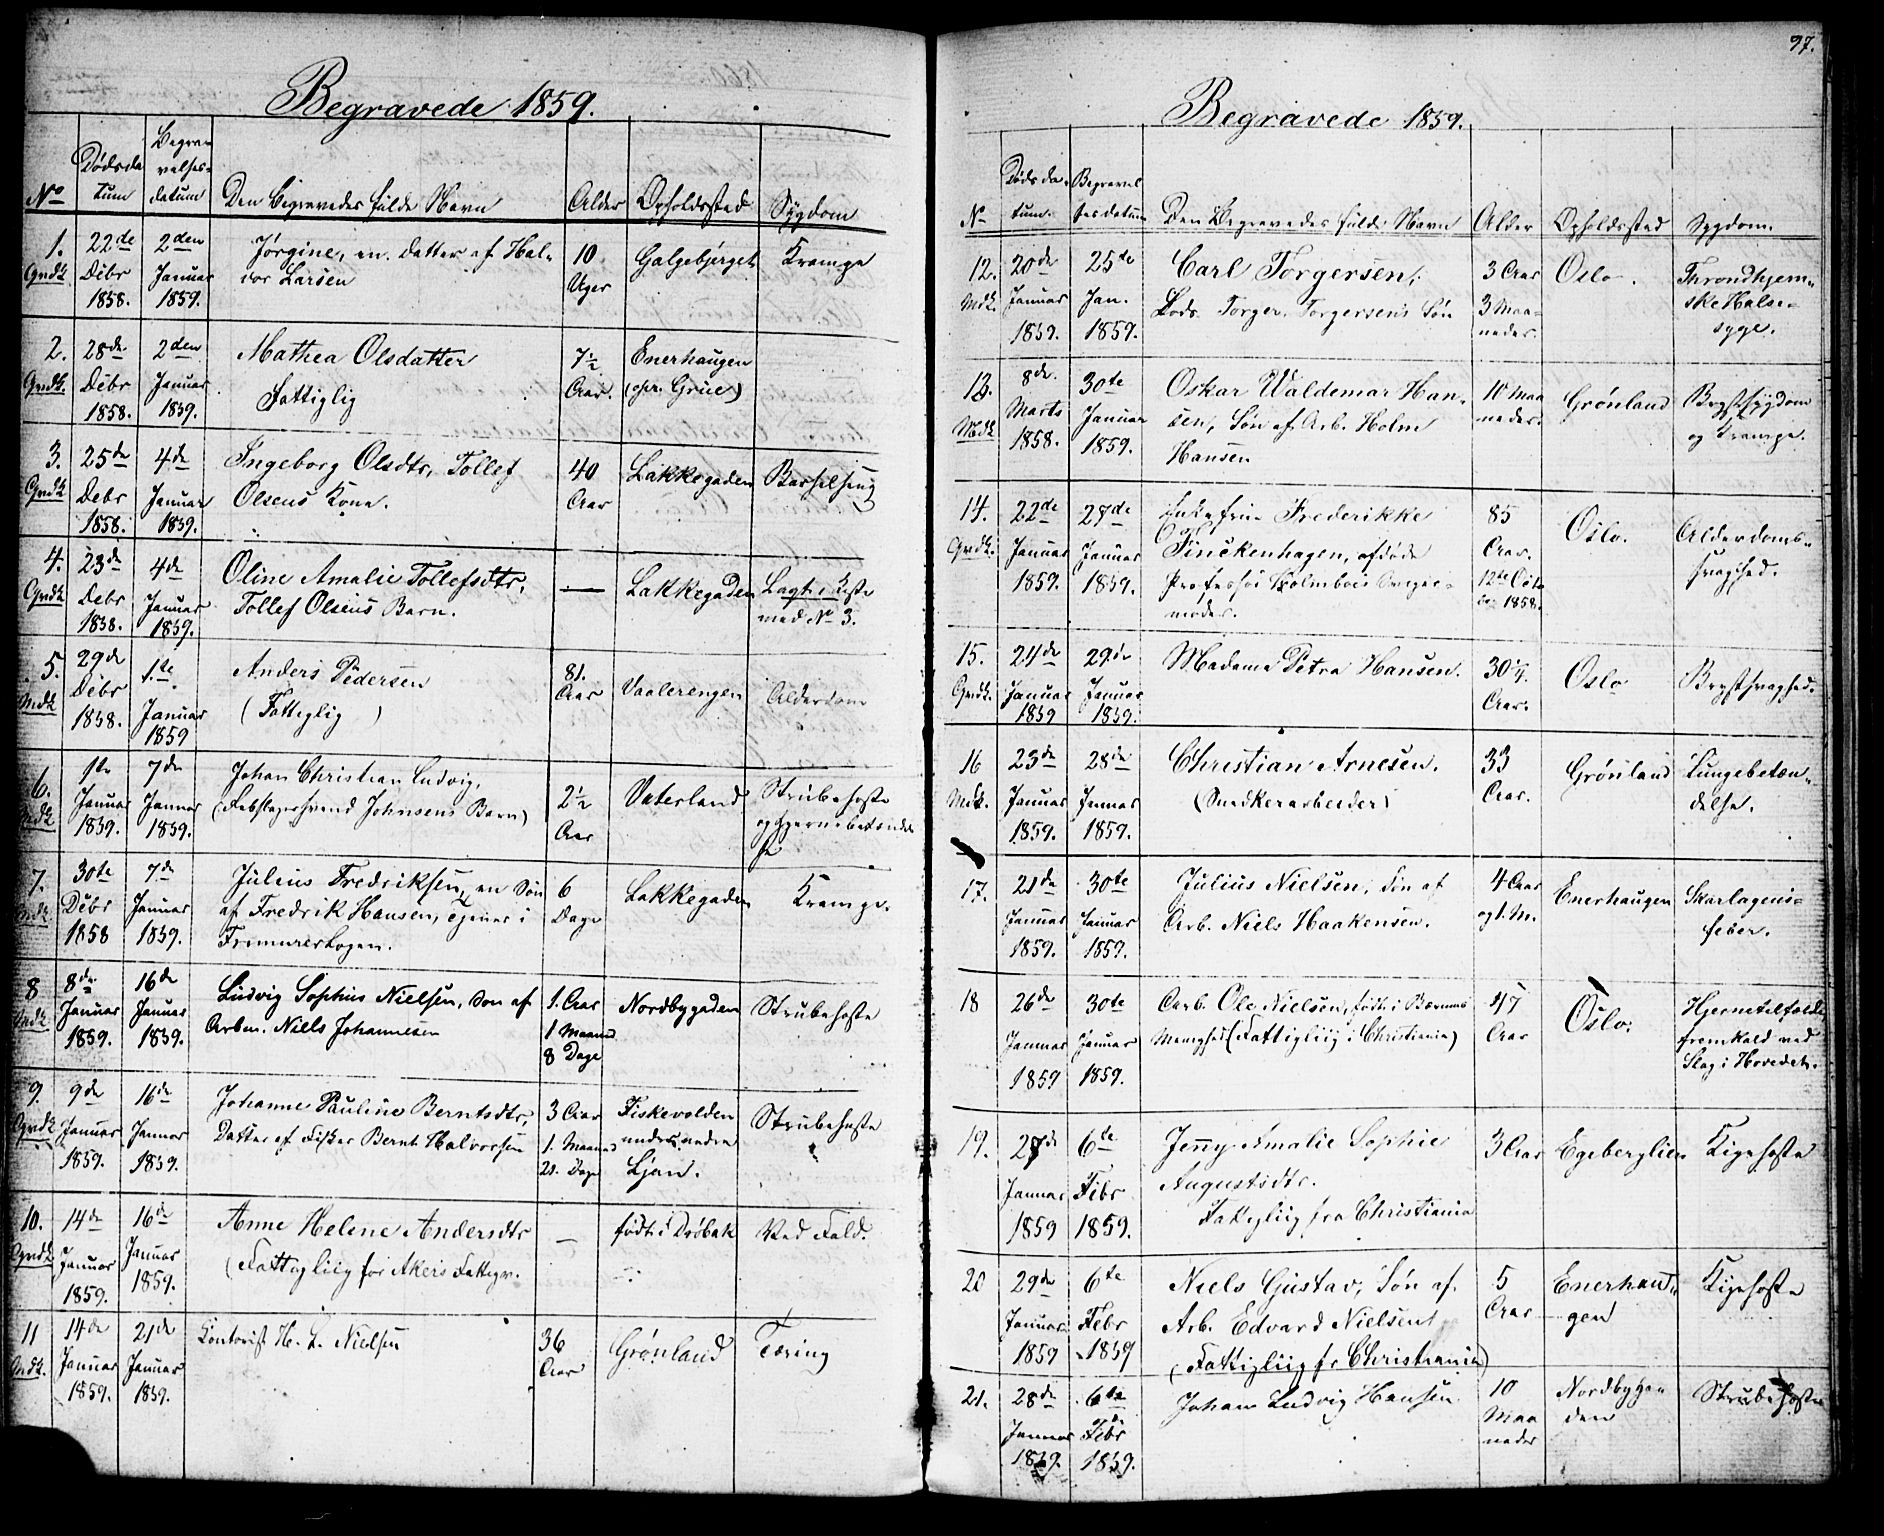 Begravede 1859.
No
Dødsda
tum
Begra
velses
datum
Den Begravedes fulde Navn
Alder
Opholdssted
Sygdom
1.
22de
Debr
1858.
2den
Januar
1859.
Jørgine, en Datter af Hal
vor Larsen
10
Uger
Galgebjerget
Krampe
2.
28de
Debr
1858.
2den
Januar
1859.
Mathea Olsdatter
Fattiglig
7½
Aar.
Enerhaugen
3.
25de
Debr
1858.
4de
Januar
1859.
Ingeborg Olsdtr, Tollef
Olsens Kone.
40
Aar
Lakkegaden
Barselseng
4.
23de
Debr
1858.
4de
Januar
1859.
Oline Amalie Tollefsdtr,
Tollef Olsens Barn.
—
Lakkegaden
Lagt i Kiste
med No 3.
5.
29de
Debr
1858.
1ste
Januar
1859
Anders Pedersen
(Fattiglig)
81.
Aar
Vaalerengen
Alderdom
6.
1ste
Januar
1859.
7de
Januar
1859.
Johan Christian Ludvig,
Johnsens Barn)
2½
Aar
Vaterland
Strubehoste
og Hjernebetændel
se
7.
30te
Debr
1858
7de
Januar
1859.
Julius Fredriksen, en Søn
af Fredrik Hansen, Tjener i
Frimurerlogen.
6
Dage
Lakkegaden
Krampe.
8
8de
Januar
1859.
16de
Januar
1859.
Ludvig Sophus Nielsen, Søn af
Arbm. Niels Johannesen
1. Aar
1 Maaned
8 Dage
Nordbygaden
Strubehoste
9.
9de
Januar
1859.
16de
Januar
1859.
Johanne Pauline Berntsdtr,
Datter af Fisker Bernt Halvorsen
3 Aar
1. Maaned
21. Dage
Fiskevolden
under nedre
Ljan.
Strubehoste
10.
14de
Januar
1859.
16de
Januar
1859.
Anne Helene Andersdtr
(Fattigliig for Akers Fattigv.
—
født i Drøbak
Ved Fald.
11
14de
Januar
1859.
21de
Januar
1859.
Kontorist H. L. Nielsen
36
Aar
Grønland
Tæring
97.
Begravede 1859.
N
Dødsda
tum.
Begravel
sesdatum
Den Begravedes fulde Navn
Alder
Opholdssted
Sygdom.
12.
20de
Januar
1859.
25de
Jan.
1859.
Carl Torgersen,
Lods Torger Torgersens Søn
3 Aar
3 Maa
neder.
Oslo.
Throndhjem
ske Halse
syge.
13.
8de
Marts
1858.
30te
Januar
1859.
Oskar Waldemar Han
sen, Søn af Arb. Holm
Hansen
10 Maa
neder.
Grønland
Brystsygdom
og Krampe.
14.
22de
Januar
1859.
27de
Januar
1859.
Enkefrue Frederikke
Finckenhagen, afdøde
Professor Holmboes Sviger
moder.
85
Aar.
12te Octo
ber 1858.
Oslo.
Alderdoms
svaghed.
15.
24de
Januar
1859
29de
Januar
1859.
Madame Petra Hansen.
30¼
Aar.
Oslo
Brystsvaghed.
16
23de
Januar
1859.
28de
Januar
1859.
Christian Arnesen.
(Snedkerarbeider)
33
Aar.
Grønland
Lungebetæn
delse.
17.
21de
Januar
1859.
30te
Januar
1859.
Julius Nielsen, Søn af
Arb. Niels Haakensen.
4 Aar
og 1. M.
Enerhaugen
Skarlagens
feber.
18
26de
Januar
1859
30te
Januar
1859.
Arb. Ole Nielsen, født i Bærums
Menighed (Fattigliig i Christiania)
47
Aar
Oslo.
Hjernetilfælde
fremkald ved
Slag i Hovedet.
19.
27de
Januar
1859
6te
Febr
1859.
Jenny Amalie Sophie
Augustsdtr.
Fattigliig fra Christiania
3 Aar
Egeberglien
Kigehoste
20
29de
Januar
1859
6te
Febr
1859
Niels Gustav, Søn af.
Arb. Edvard Nielsen
(Fattigliig fr Christiania)
5
Aar
Enerhau
gen
Kigehoste
21.
28de
Januar
1859.
6te
Febr
1859.
Johan Ludvig Hansen
10
Maa
neder
Nordbyga
den
Strubehoste